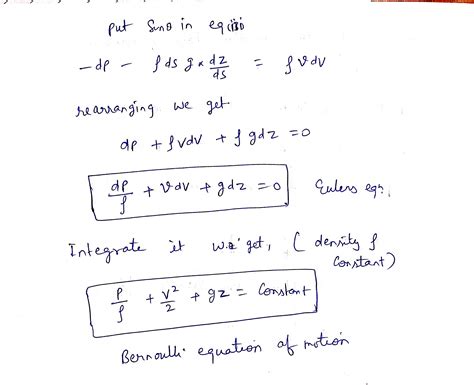 put Sinθ in eq (iii)
-dp - ρ ds g × dz/ds = ρ v dv
rearranging we get
dp + ρvdv + ρ gdz = 0
dp/ρ + vdv + gdz = 0 Eulers eqn.
Integrate it we get, ( density ρ
constant)
P/ρ + v²/2 + gz = Constant
Bernoulli equation of motion